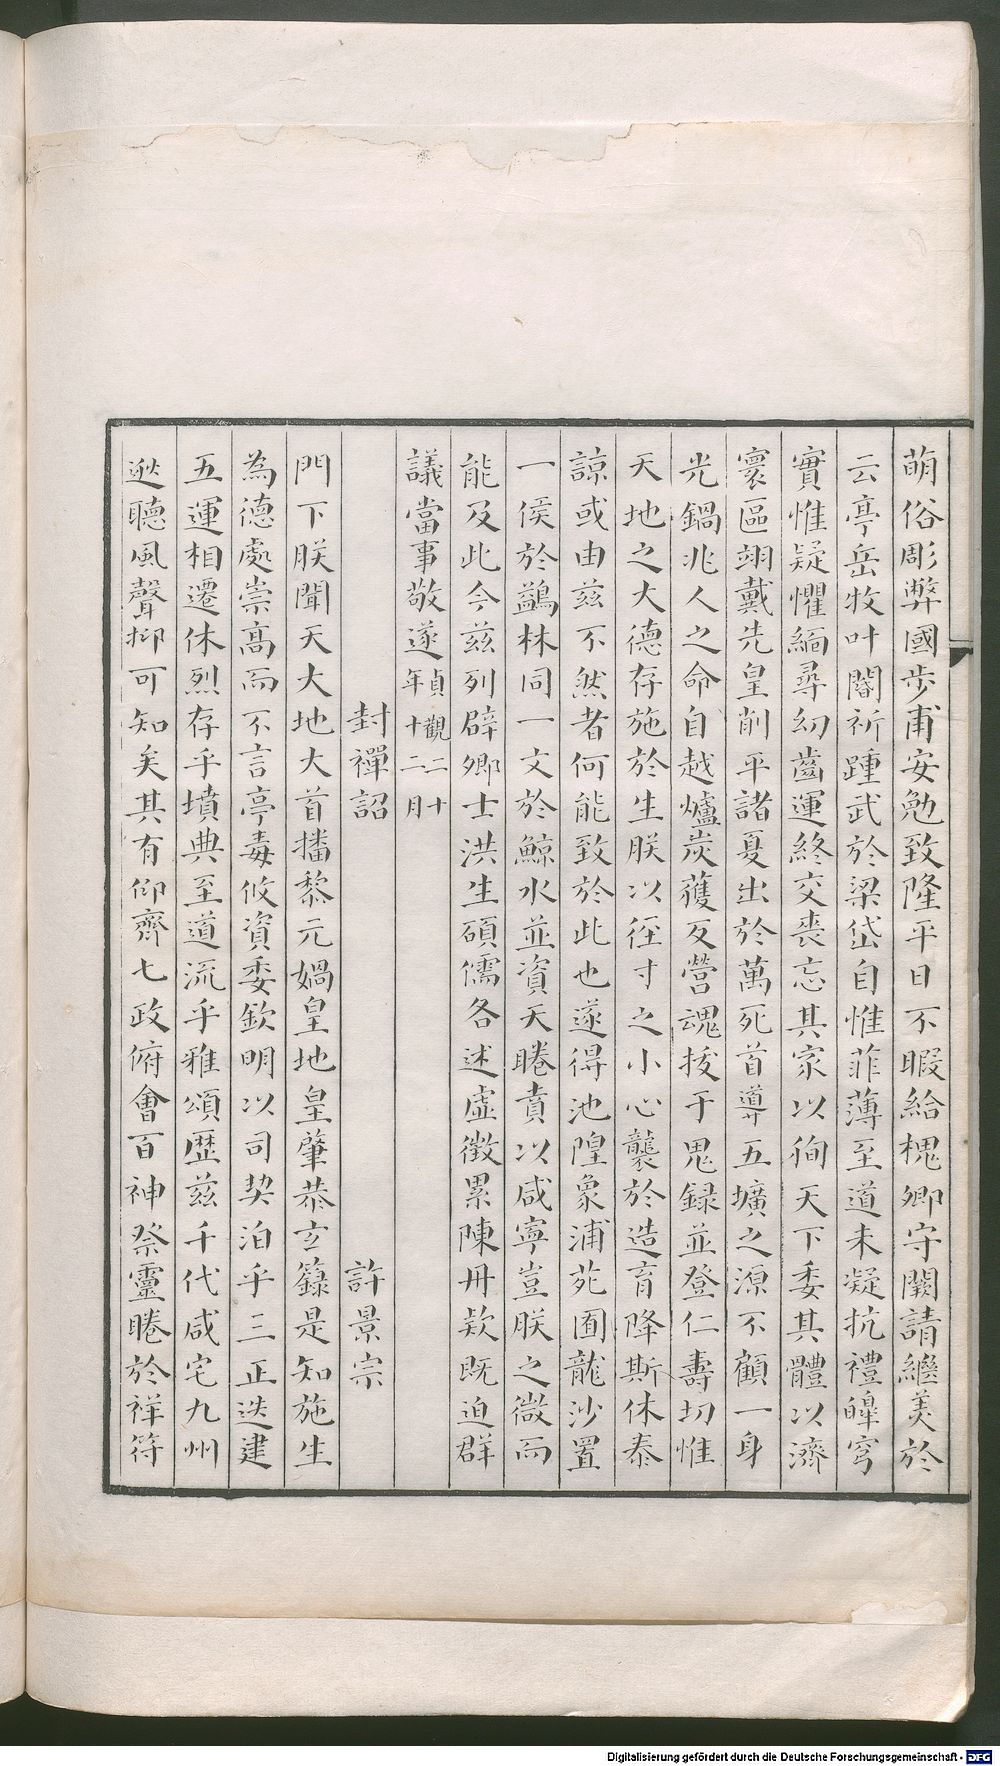 萌俗彫弊國步甫安勉致隆平日不暇給槐卿守闕請繼美於
云亭岳牧叶闇祈踵武於梁岱自惟菲薄至道未凝抗禮皥穹
實惟疑懼緬尋幼齒運終交喪忘其家以徇天下委其體以濟
寰區翊戴先皇削平諸夏出於萬死首導五壙之源不顧一身
光鍋兆人之命自越爐炭蒦反營魂拔于鬼録並登仁壽切惟
天地之大德存施於生朕以徑寸之小心襲於造育降斯休泰
諒或由兹不然者何能致於此也遂得池隍象浦苑囿龍沙置
一侯於鷁林同一文於鯨水並資天睠賁以咸寧豈朕之微而
能及此今兹列辟卿士洪生碩儒各述虛徴累陳冊欵既迫群
議當事敬遂貞觀二十年十二月
封禪詔 許景宗
門下朕聞天大地大首播黎元媧皇地皇肇恭玄籙是知施生
為德處崇高而不言亭毒攸資委欽明以司契洎乎三正迭建
五運相遷休烈存乎墳典至道流乎雅頌歷兹千代咸宅九州
逖聽風聲抑可知矣其有仰齊七政俯會百神祭靈睠於祥符
Digitalisierung gefördert durch die Deutsche Forschungsgemeinschaft - DFG